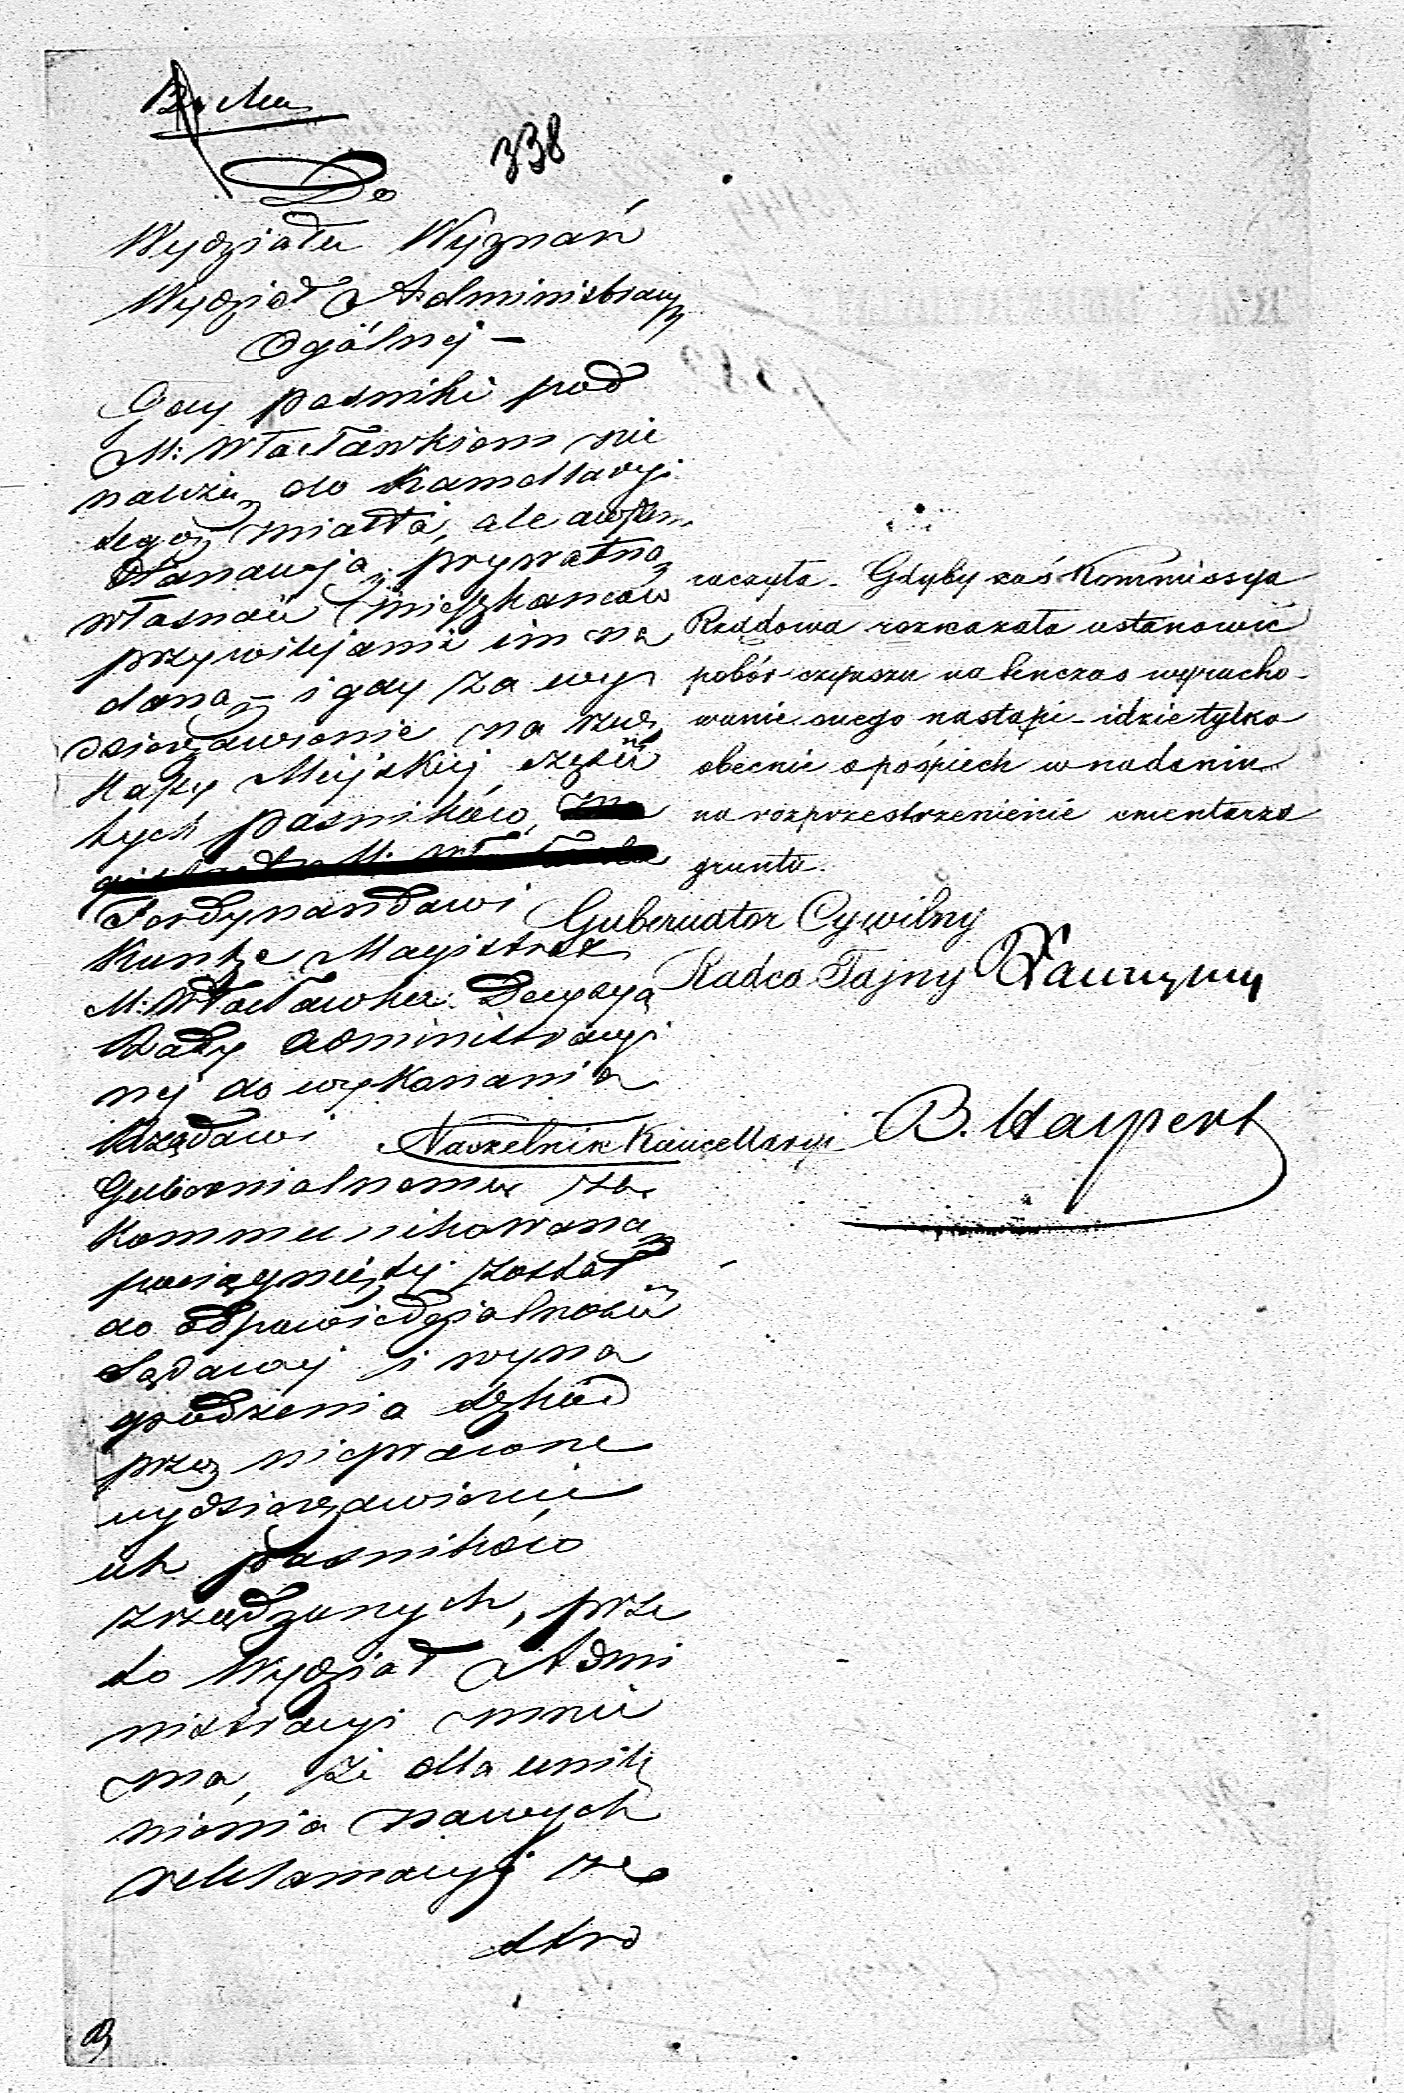 338
Do
Wydziału Wyznań
Wydział Administracyi
Ogólnej –
Gdy pastniki pod
M: Włocławkiem nie
należą do Kamellaryi
tegoż miasta, ale
stanowią prywatną
własność mieszkańców
przywilejami im na
daną – i gdy za wy
dzierżawienie na rzecz
Kassy Miejskiej części
tych pastników,
Ferdynandowi
Kuntze Magistrat
M: Włocławka Decyzyą
Rady Administracyj
nej do wykonania
Rządowi
Gubernialnemu za
kommunikowaną
pociągnięty został
do odpowiedzialności
Sądowej i wyna
grodzenia szkód
przez nieprawne
wydzierżawienie
ich pastników
zrządzonych, prze
to Wydział Admi
nistracyi mnie
ma, że dla unik
nienia nowych
reklamacyj ze
stro
raczyła. Gdyby zaś Kommissya
Rządowa rozkazała ustanowić
pobór czynszu na tenczas wyracho-
wanie onego nastąpi – idzie tylko
obecnie o pośpiech w nadaniu
na rozprzestrzenienie cmentarza
gruntu.
Gubernator Cywilny
Radca Tajny
Naczelnik Kancellaryi B. Halpert